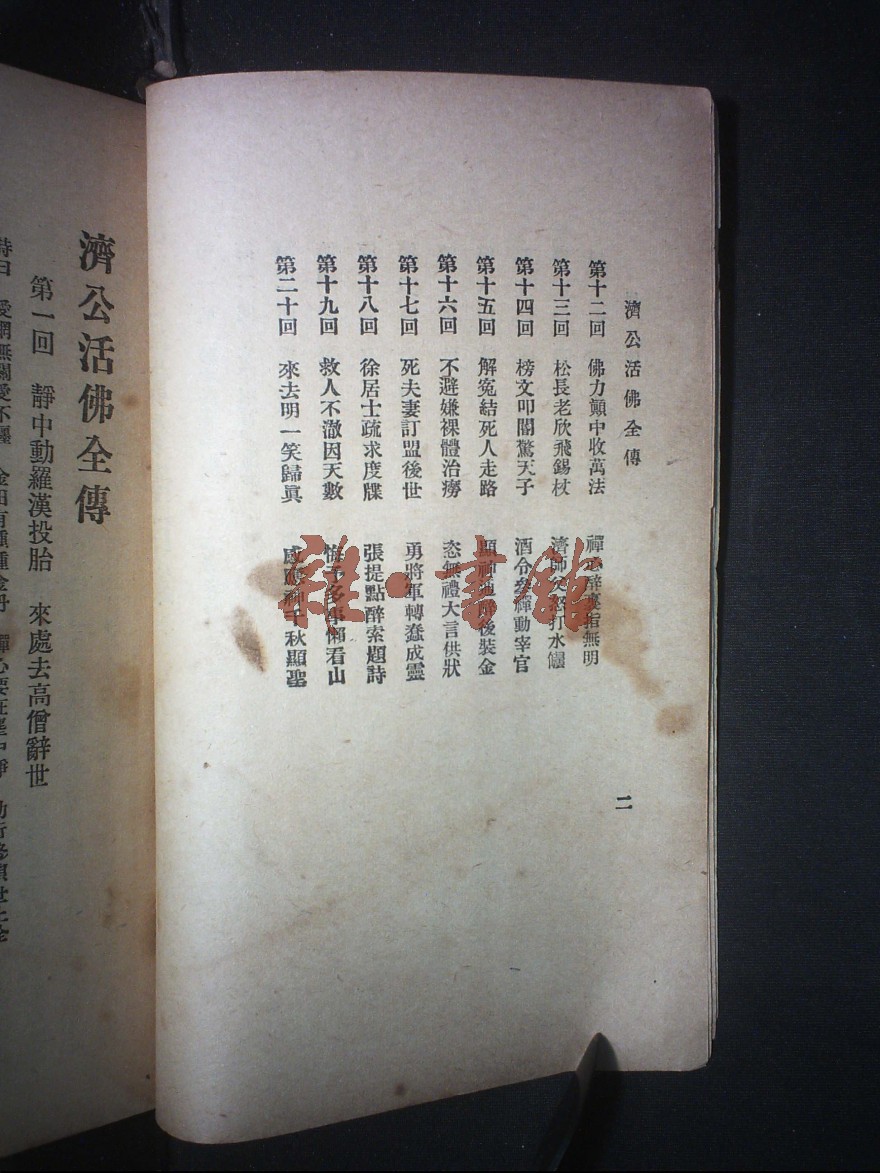 濟公活佛全傳
第十二回 佛力顚中收萬法 禪心醉裏指無明
第十三回 松長老欣飛錫杖 濟師父怒打水𩟔
第十四回 榜文叩閽驚天子 酒令參禪動宰官
第十五回 解寃結死人走路 顯神通醉後裝金
第十六回 不避嫌裸體治癆 恣無禮大言供狀
第十七回 死夫妻訂盟後世 勇將軍轉蠢成靈
第十八回 徐居士疏求度牒 張提點醉索題詩
第十九回 救人不澈因天數 悔予多事懶看山
第二十回 來去明一笑歸眞 感應神千秋顯聖
二
濟公活佛全傳
第一回 靜中動羅漢投胎 來處去高僧辭世
雜·書館